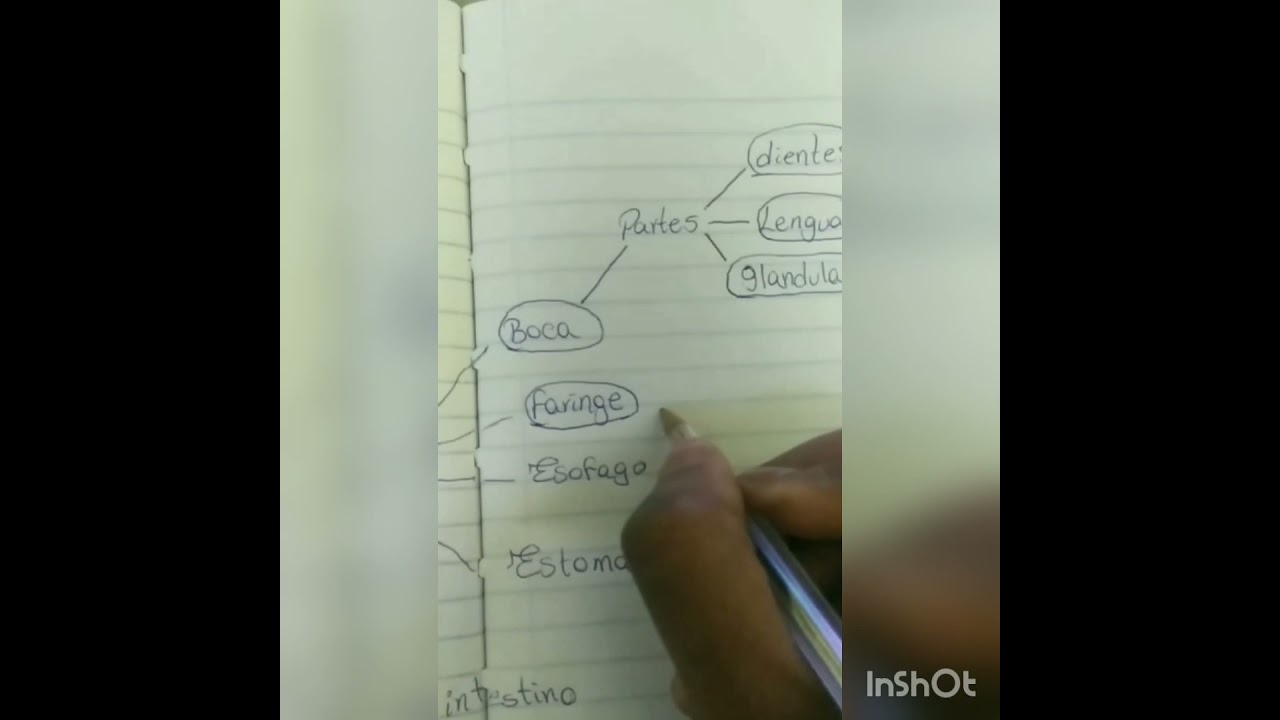 diente
Partes
Lengua
glandula
Boca
Faringe
Esofago
Estoma
intestino
InShOt